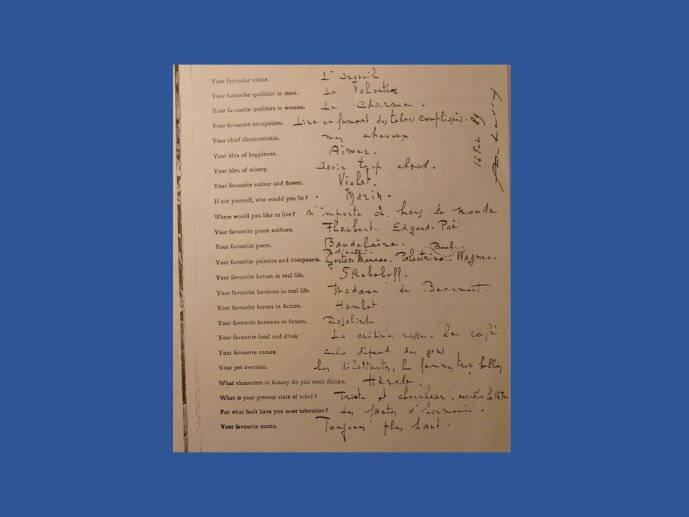 Your favourite virtue. L'orgueil
Your favourite qualities in man. La Volonté
Your favourite qualities in woman. Le Charme.
Your favourite occupation. Lire en fumant des tabacs compliqués.
Your chief characteristic. mes cheveux.
Your idea of happiness. Aimer.
Your idea of misery. avoir trop chaud.
Your favourite colour and flower. Violet.
If not yourself, who would you be? Marin.
Where would you like to live? N'importe où, hors du monde
Your favourite prose authors. Flaubert. Edgard-Poë
Your favourite poets. Baudelaire.
Your favourite painters and composers. Botticelli. Gustave Moreau. Palestrina. Bach. Wagner.
Your favourite heroes in real life. Skobeleff.
Your favourite heroines in real life. Madame de Beaumont.
Your favourite heroes in fiction. Hamlet
Your favourite heroines in fiction. Rosalinde
Your favourite food and drink. La cuisine russe. Le café.
Your favourite names. Cela dépend des gens
Your pet aversion. Les dilettantes, les femmes trop belles
What characters in history do you most dislike. Hérode.
What is your present state of mind? Triste et chercheur, excepté le
For what fault have you most toleration? Les fautes d'harmonie.
Your favourite motto. Toujours plus haut.
16 Fev